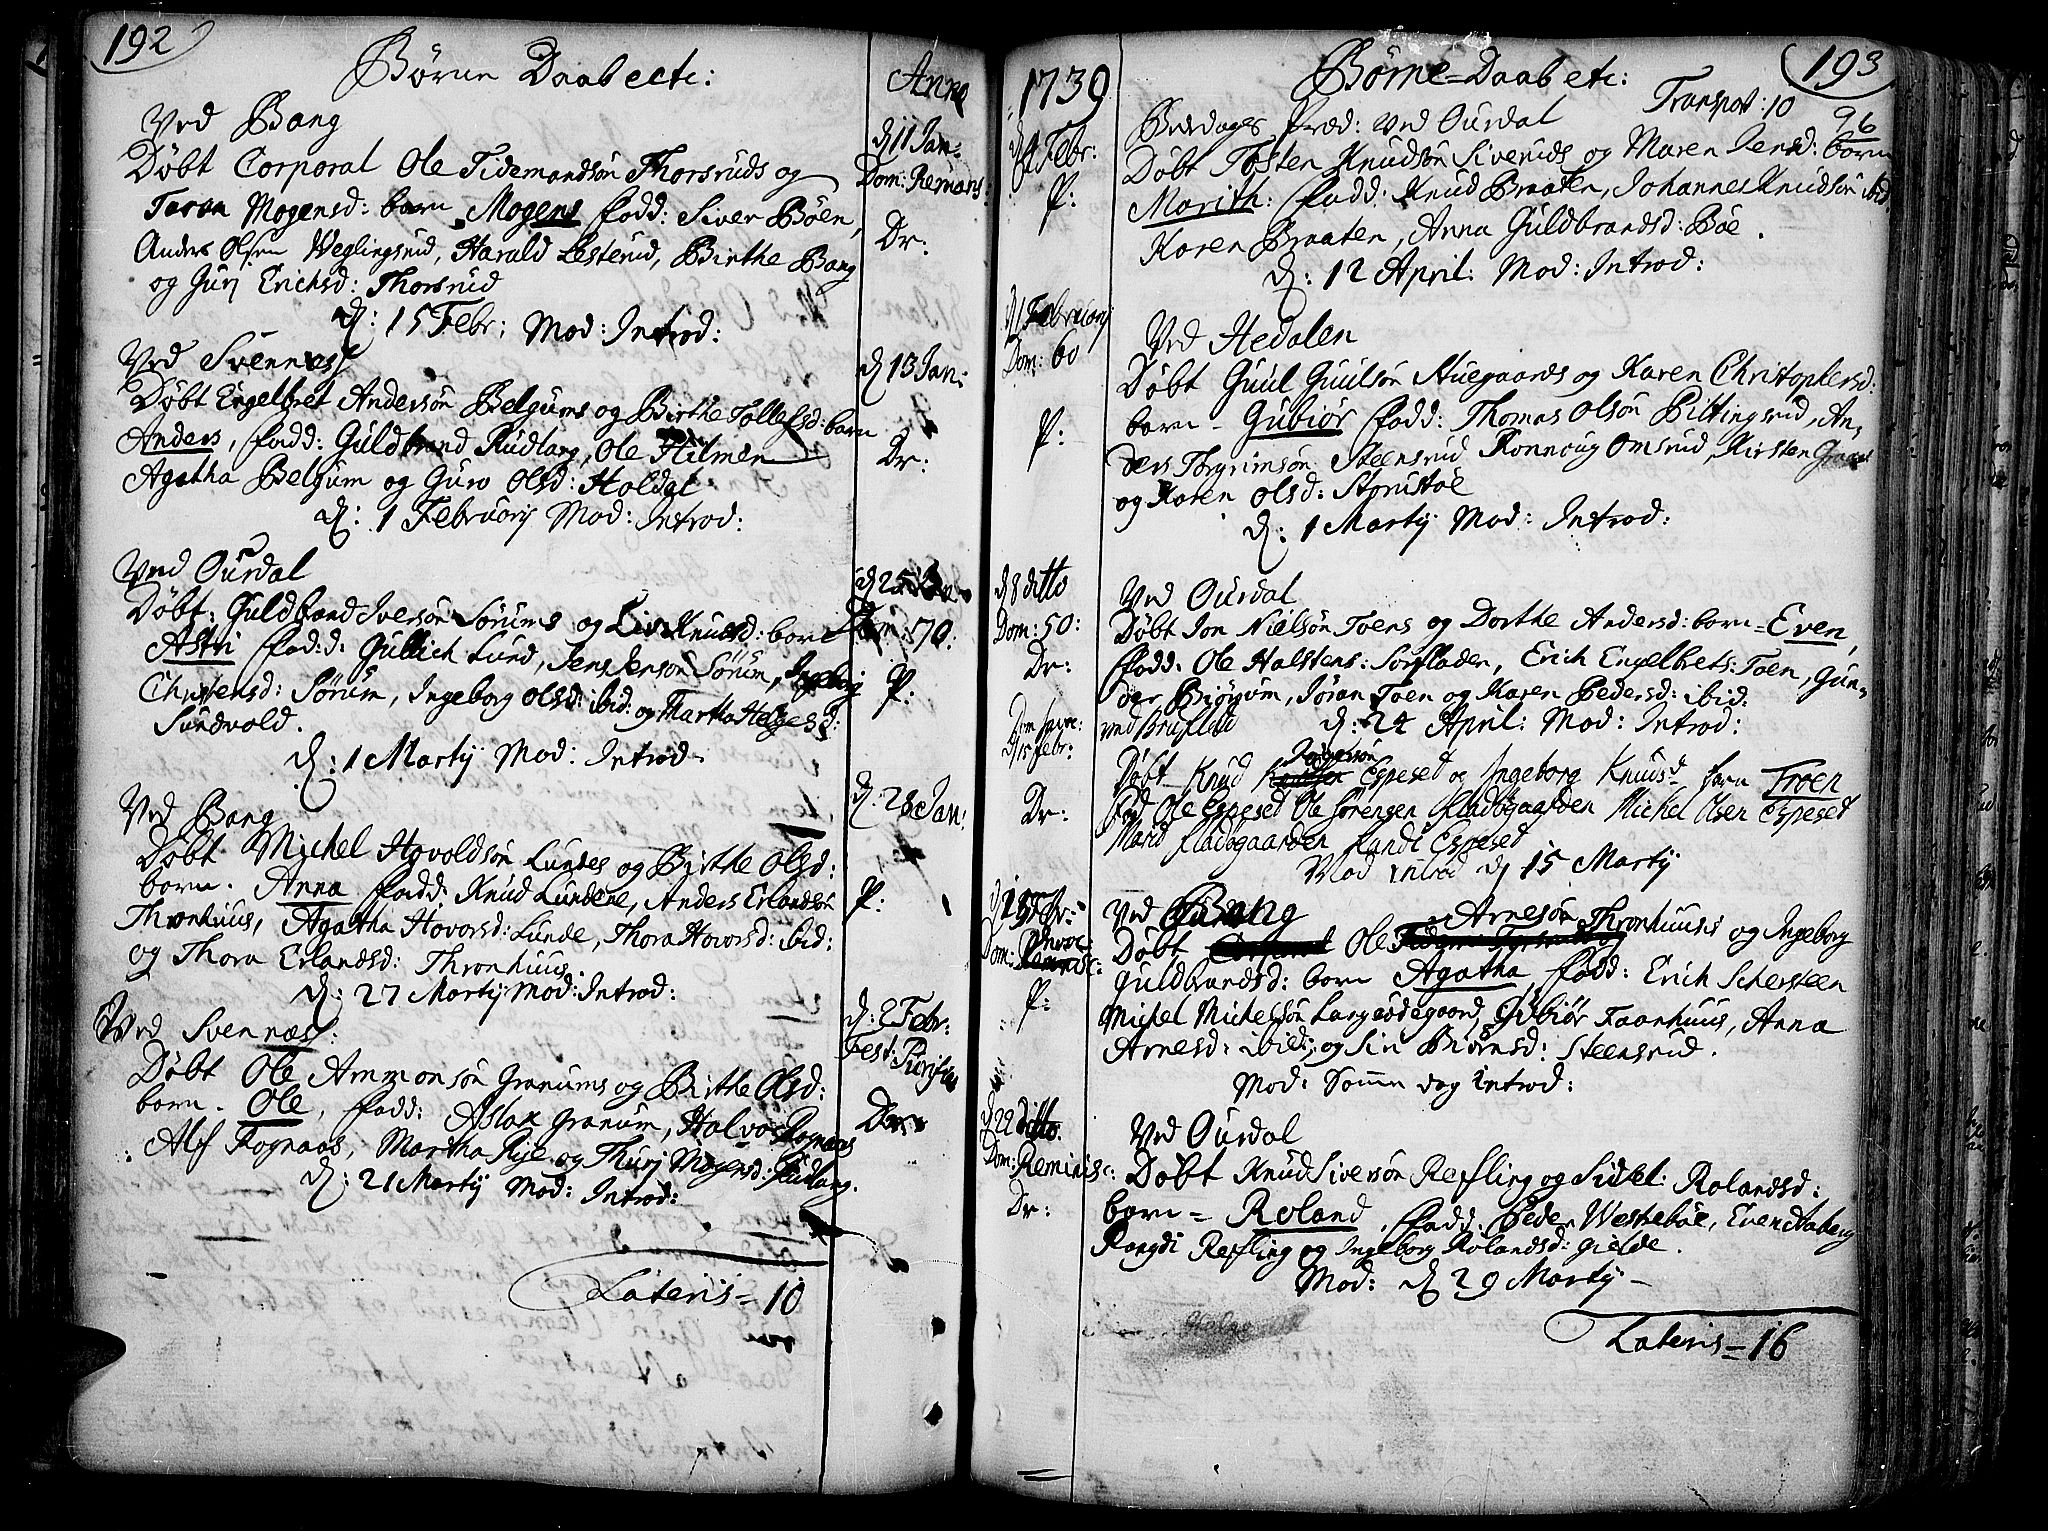 192
Børne Daab etc:
Anno
Ved Bang
d 11 Jan:
Døbt Corporal Ole Tidemandsøn Thorsruds og
Dom:
Taran Mogensd: barn Mogens Fadd: Siver Bøen,
Dr:
Anders Olsen Weglingsrud, Harald Lesterud, Birthe Bang
og Guri Erichsd: Thorsrud
d: 15 Febr: Mod: Introd:
Ved Svennes
d 13 Jan:
Døbt Engelbret Andersøn Belgums og Birthe Tollefsd: barn
Anders, Fadd: Guldbrand Rudlang, Ole Hilmen
Dr:
Agatha Belgum og Guro Olsd: Holdal
d: 1 Februarij Mod: Introd:
Ved Ourdal
d 25
Døbt: Guldbrand Iversøn Sørums og Liv Knudsd: barn
70:
Astri Fadd: Gullich Lund, Jens Jensøn Sørum, Ingeborg
P:
Christensd: Sørum, Ingeborg Olsd: ibid: og Martha Helgesd:
Sundvold.
d: 1 Martij Mod: Introd:
Ved Bang
d: 28 Jan:
Døbt Michel Hovoldsøn Lundes og Birthe Olsd:
barn. Anna Fadd: Knud Lundene, Anders Erlandsøn
P:
Thronhuus, Agatha Hovorsd: Lunde, Thora Hovorsd: ibid:
og Thora Erlandsd: Thronhuus.
d: 27 Martij Mod: Introd:
Ved Svennæs:
d: 2 Febr:
Fest:
Døbt Ole Ammonsøn Granums og Birthe Olsd:
barn. Ole, Fadd: Aslak Granum, Halvor Rognaas
Dr:
Alf Rognaas, Martha Rye og Thurj Mogensd: Rudlang.
d: 21 Martij Mod: Introd:
Lateris = 10
1739
Børne=Daab etc:
193
Transport: 10
96
Febr:
ved Ourdal
Døbt Tosten Knudsøn Siveruds og Maren Jensd: barn
P:
Marith: Fadd: Knud Braaten, Johannes Knudsøn ibid:
Karen Braaten, Anna Guldbrandsd: Bøe.
d: 12 April: Mod: Introd:
d 1 Februarij
Dom: 60
Ved Hedalen
Døbt Guul Guulsøn Stuegaards og Karen Christophersd:
P:
barn - Gubiør Fadd: Thomas Olsøn Bittingsrud, An,
ders Torgrimsøn Steensrud Ronnoug Omsrud, Kirsten
og Karen Olsd: Storustøe
d: 1 Martij Mod: Introd:
d 8 ditto
Ved Ourdal
Dom: 50:
Døbt Jon Nielsøn Toens og Dorthe Andersd: barn = Even,
Dr:
Fadd: Ole Halstens: Sørfladen, Erich Engelbrets: Toen, Gun,
der Biørgum, Jøran Toen og Karen Pedersd: ibid:
d: 24 April: Mod: Introd:
d 15 Febr:
ved Bruflad
Døbt Knud Espeset og Ingeborg Knudsd barn Troen
Dr:
Fad Ole Espeset Ole Sørensen Fladøgaarden Michel Olsen Espeset
Marid Fladøgaarden Randi Espeset
Mod introd d 15 Martij
Ved Bang
Dom:
Døbt Ole Arnesøn Thronhuuses og Ingeborg
Guldbrandsd: barn Agatha, Fadd: Erich Schersteen
P:
Michel Michelsøn Langødegaard, Gubiør Faanhuus, Anna
Arnesd: ibid: og Siri Biørnsd: Steensrud.
Mod: Samme dag Introd:
d 22 ditto.
Ved Ourdal
Dom: Reminisc:
Døbt Knud Siversøn Refling og Sidsel: Rolandsd:
Dr:
barn = Roland, Fadd: Peder Westrebøe, Even Aaberg
Rangdi Refling og Ingeborg Rolandsd: Gielde.
Mod: d 29 Martij
Lateris = 16